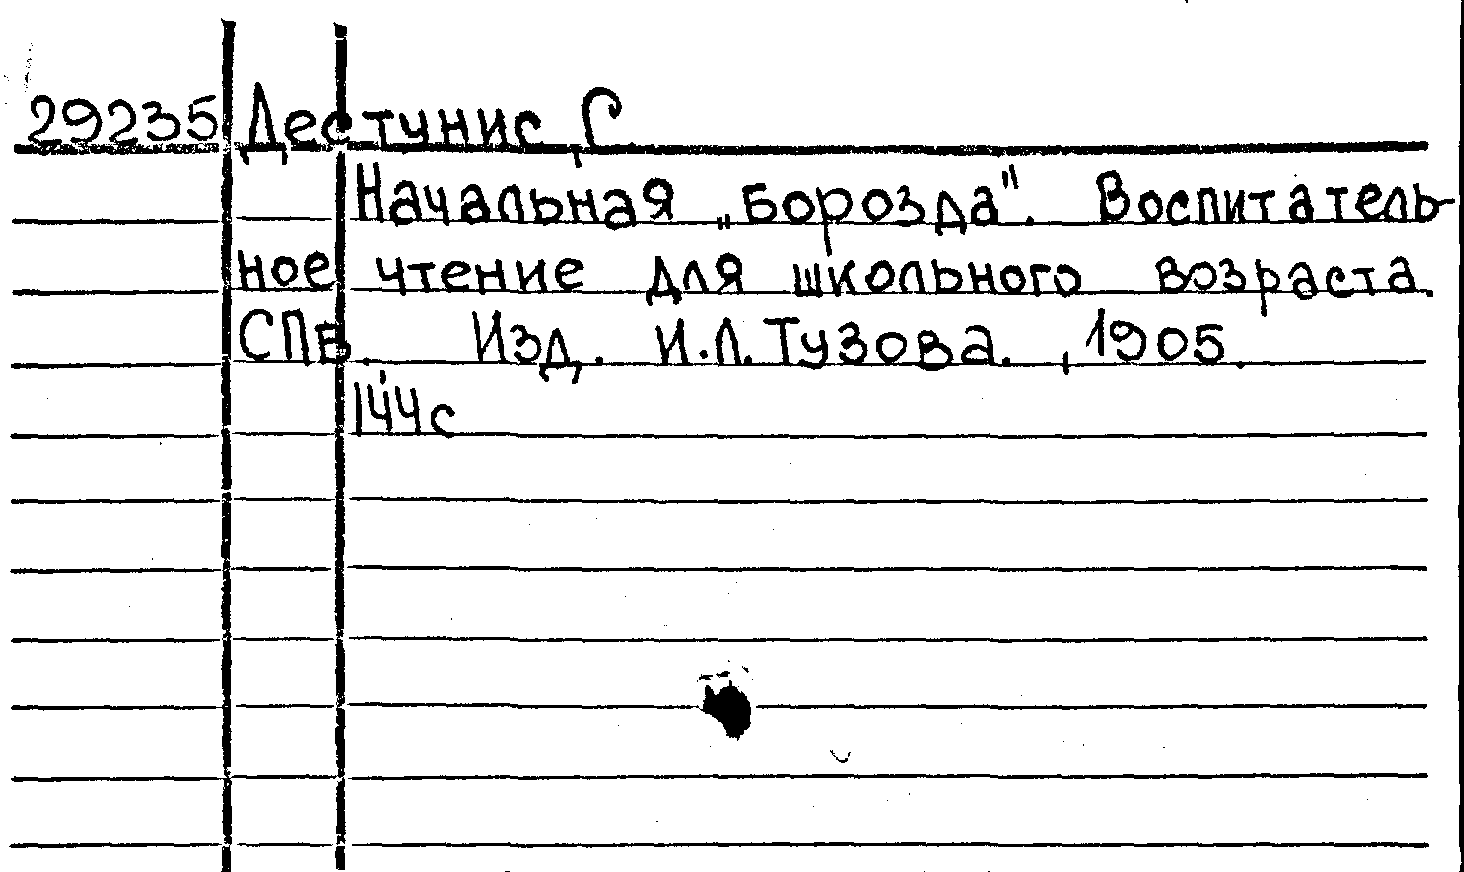 29235 Дестунис, С
Начальная „борозда". Воспитатель-
ное чтение для школьного возраста.
СПБ. Изд. И.Л. Тузова. , 1905.
144с